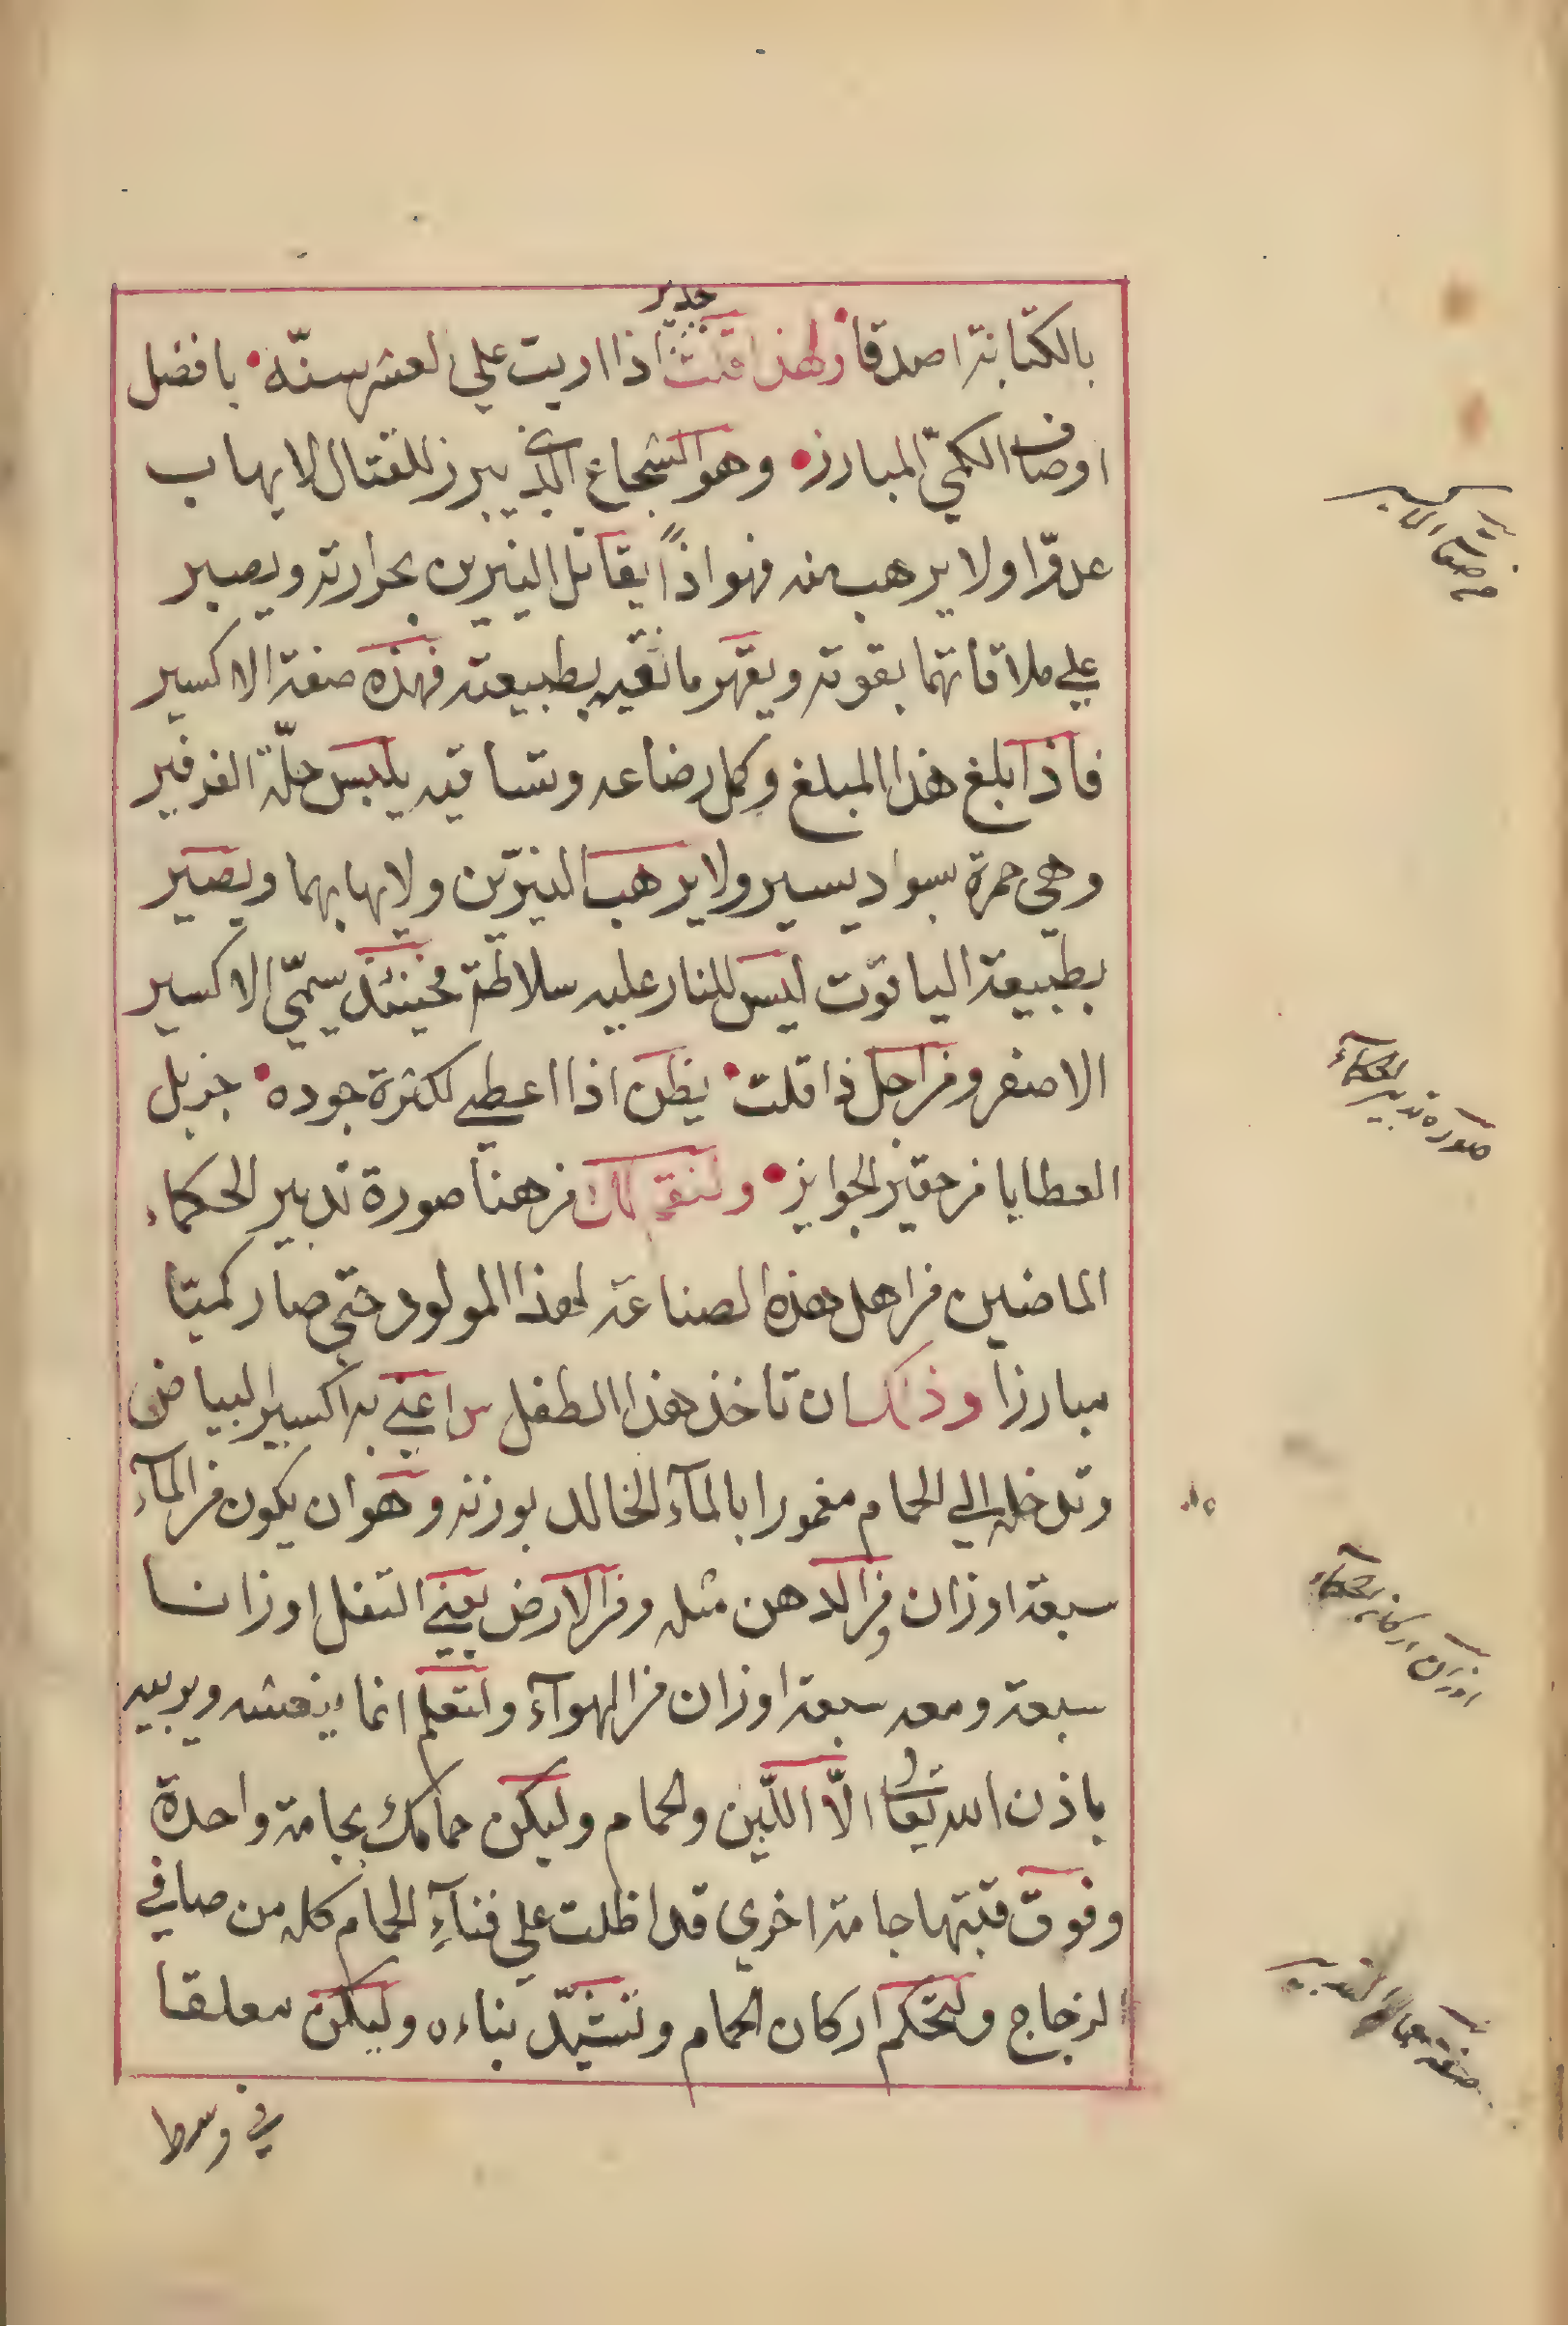 جدير
بالكتابة اصدقا ولهذا قلت اذا اربت على العشر سنّه بافضل
اوصاف الكميّ المبارزه وهو الشجاع الذي يبرز للقتال لا يهاب
عدوّا ولا يرهب منه فهو اذاً يقاتل النيرين بحرارته ويصبر
علي ملاقاتهما بقوته ويقهر ما لقيه بطبيعته فهذه صفة الاكسير
فاذا بلغ هذا المبلغ وكمل رضاعه وتساقيه يلبس حلّة الفرفير
وهي حمرة بسواد يسير ولا يرهب النيرين ولا يهابهما ويصير
بطبيعة الياقوت ليس للنار عليه سلاطة فحينئذ يسمّي الاكسير
الاصفر ومن اجل ذا قلت يظن اذا اعطى لكثرة جوده جزيل
العطايا من حقير الجوايز من هنا صورة تدبير الحكماء
الماضين من اهل هذه الصناعة لهذا المولود حتي صار كميّا
مبارزا وذلك ان تاخذ هذا الطفل اعني به اكسير البياض
وتدخله الي الحمام مغمورا بالمآء الخالد بوزنه وهو ان يكون من المآء
سبعة اوزان ومن الدهن مثله ومن الارض يعني الثفل اوزانا
سبعة ومعه سبعة اوزان من الهوآء ولتعلم انما ينعشه ويربيه
باذن الله تعالى الّا اللّبن والحمام وليكن حمامك بجامة واحدة
وفوق قبتها جامة اخري قد اظلت علي فنآء الحمام كله من صافي
الزجاج ولتحكم اركان الحمام وتشيّد بناءه وليكن معلقا
في وسط
صفة الاكسير
صورة تدبير الحكمآء
اوزان اركان الحكمآء
صفة حمام التدبير